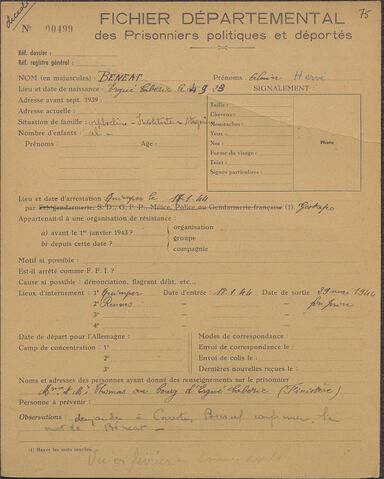 décédé
75
FICHIER DÉPARTEMENTAL
des Prisonniers politiques et déportés
N° 00499
Réf. dossier :
Réf. registre général :
NOM (en majuscules) : BENEAT Prénoms Hervé
Lieu et date de naissance : Ergué Gabéric SIGNALEMENT :
Adresse avant sept. 1939 :
Adresse actuelle :
Situation de famille :
Nombre d'enfants :
Prénoms : Age :
Taille :
Cheveux :
Moustaches :
Yeux :
Nez :
Forme du visage :
Teint :
Signes particuliers :
Photo
Lieu et date d'arrestation Quimper le 17.1.44
par Feldgendarmerie, S. D., G. F. P., Milice, Police ou Gendarmerie française (1). Gestapo
Appartenait-il à une organisation de résistance :
a) avant le 1er janvier 1943 ?
b) depuis cette date ?
organisation
groupe
compagnie
Motif si possible :
Est-il arrêté comme F. F. I. ?
Cause si possible : dénonciation, flagrant délit, etc...
Lieux d'internement : 1° Quimper Date d'entrée : 17.1.44 Date de sortie 29 mai 1944
2° Rennes — —
3° — —
4° — —
Date de départ pour l'Allemagne :
Camp de concentration : 1°
2°
3°
Modes de correspondance :
Envoi de correspondance le :
Envoi de colis le :
Dernières nouvelles reçues le :
Noms et adresses des personnes ayant donné des renseignements sur le prisonnier
Thomas Bourg d'Ergué Gabéric (Finistère)
Personne à prévenir :
Observations : demander à confirmer la
mort de Béneat —
(1) Rayer les mots inutiles.